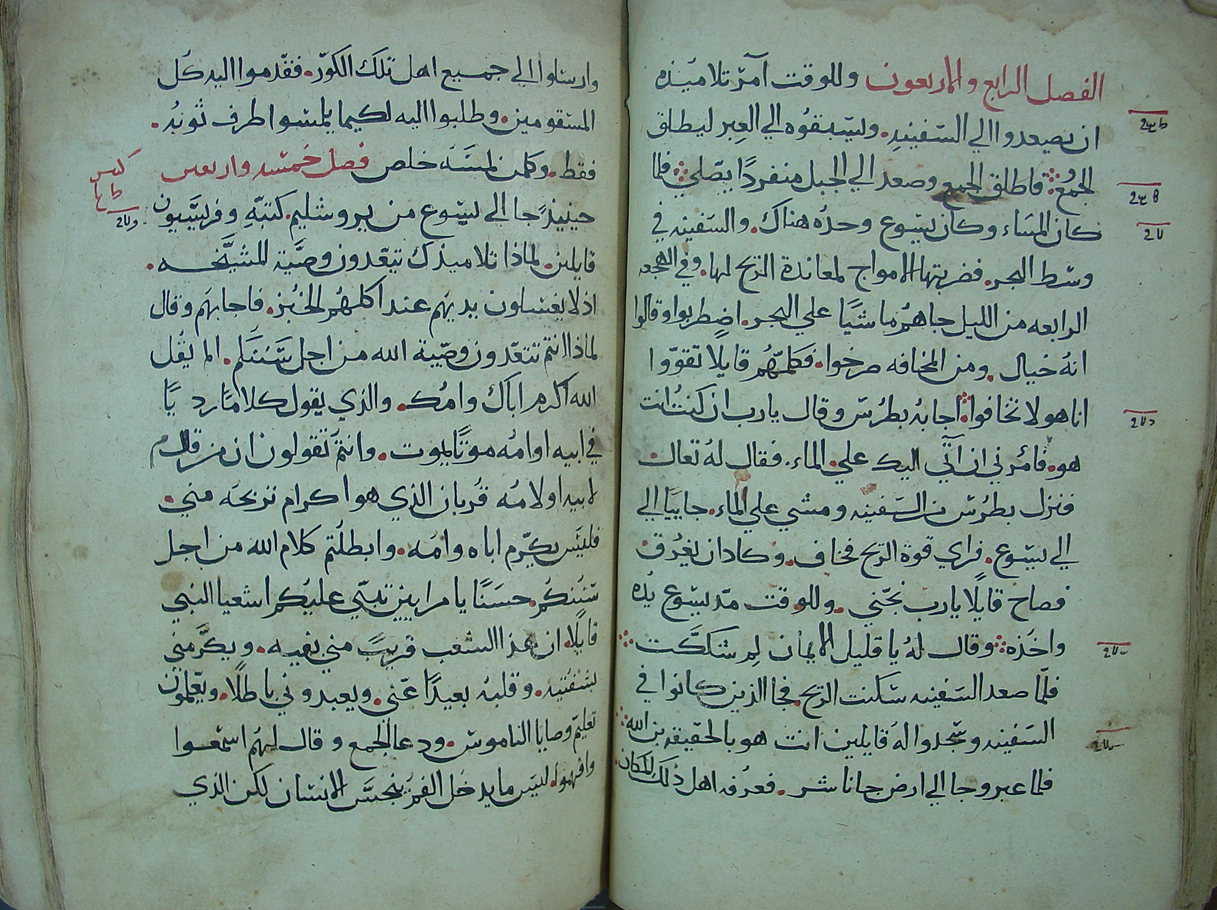 الفصل الرابع والاربعون وللوقت آمر تلاميذه
ان يصعدوا الي السفينه. وليسبقوه الي العبر ليطلق
الجمع فاطلق الجمع وصعد الي الجبل منفردًا يصلي فلما
كان المساء وكان يسوع وحده هناك. والسفينه في
وسط البحر. فضربتها الامواج لمعاندة الريح لها. وفي الهجعه
الرابعه من الليل جاهم ماشيًا علي البحر. اضطربوا وقالوا
انه خيال. ومن المخافه صرخوا. فكلمهم قايلا تقووا
انا هو لا تخافوا اجابه بطرس وقال يارب ان كنت انت
هو. فأمرني ان آتي اليك علي الماء. فقال له تعال
فنزل بطرس من السفينه ومشي علي الماء. جاييًا الي
الي يسوع. فراي قوة الريح فخاف. وكاد ان يغرق
فصاح قايلًا يارب نجني. وللوقت مد يسوع يده
واخذه وقال له يا قليل الايمان لم شككت
فلما صعد السفينه سكنت الريح. فجا الذين كانوا في
السفينه وسجدوا له قايلين انت هو بالحقيقه بن الله
فلما عبر وجا الي ارض جاناشر. فعرفه اهل ذلك المكان
وارسلوا الي جميع اهل تلك الكور. فقدموا اليه كل
المسقومين. وطلبوا اليه لكيما يلمسوا طرف ثوبه.
فقط. وكلمن لمسه خلص فصل خمسه واربعين
حينيذ جا الي يسوع من يروشليم. كتبه وفريسيون
قايلين. لماذا تلاميذك يتعدون وصية المشيخه.
اذ لا يغسلون يديهم عند اكلهم الخبز. فاجابهم وقال
لماذا انتم تتعدون وصية الله من اجل سننكم. الم يقل
الله اكرم اباك وامك. والذي يقول كلامًا رديًا
في ابيه او امه موتًا يموت. وانتم تقولون ان من قال
لابيه او لامه قربان الذي هو اكرام تربحه مني.
فليس يكرم اباه وامه. وابطلتم كلام الله من اجل
سننكم. حسنًا يا مرايين تنبي عليكم اشعيا النبي
قايلًا. ان هذا الشعب قريب مني بفيه. ويكرمني
بشفتيه. وقلبه بعيدًا عني. ويعبدوني باطلًا. ويعلمون
تعليم وصايا الناموس. ودعا الجمع وقال لهم اسمعوا
وافهموا. ليس ما يدخل الفم ينجس الانسان لكن الذي